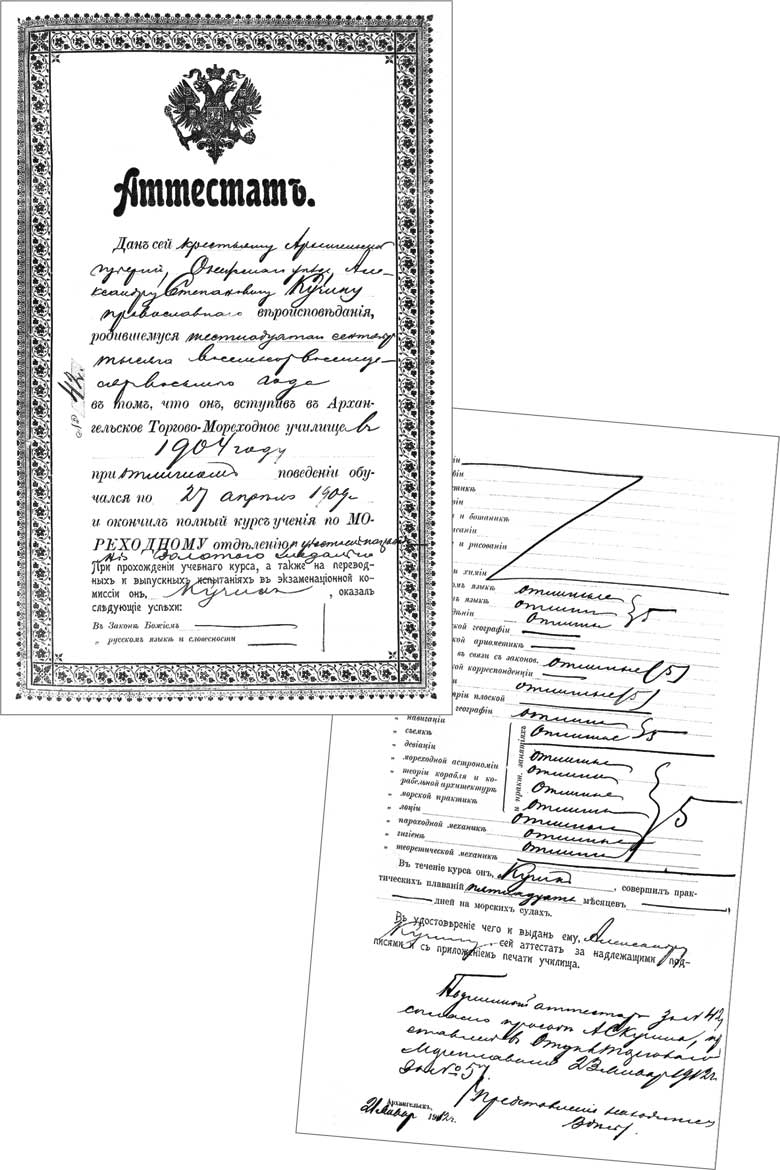 Аттестатъ.
Данъ сей крестьянину Архангельской
губернiи, Онежскаго уѣзда, Але-
ксандру Степановичу Кучину
православнаго вѣроисповѣданiя,
родившемуся шестнадцатаго сентября
тысяча восемьсотъ восемьде-
сятъ восьмого года
въ томъ, что онъ, вступивъ въ Архан-
гельское Торгово-Мореходное училище въ
1904 году
при отличномъ поведенiи обу-
чался по 27 апрѣля 1909 г.
и окончилъ полный курсъ ученiя по МО-
РЕХОДНОМУ отдѣленiю
золотого медалью
При прохожденiи учебнаго курса, а также на перевод-
ныхъ и выпускныхъ испытанiяхъ въ экзаменацiонной ко-
миссiи онъ, Кучинъ, оказалъ
слѣдующiе успѣхи:
Въ Законѣ Божiемъ
„ русскомъ языкѣ и словесности
№ 42
и ботаникѣ
и рисованiи
и химiи
языкѣ отлично
языкѣ отлично } 5
отлично
географiи
ариѳметикѣ
въ связи съ законов. отличные (5)
корреспонденцiи
отличные (5)
плоской
географiи отличные } 5
„ навигацiи отличные
„ съемкѣ
„ девiацiи отличные
„ мореходной астрономiи отлично
„ теорiи корабля и ко-
рабельной архитектурѣ отлично
„ морской практикѣ отлично
„ лоцiи отличные
„ пароходной механикѣ отличные
„ гигiенѣ отлично
„ теоретической механикѣ
и практ. занятiяхъ
5
Въ теченiе курса онъ, Кучинъ, совершилъ прак-
тическихъ плаванiй пятнадцать мѣсяцевъ
дней на морскихъ судахъ.
Въ удостовѣренiе чего и выданъ ему, Александру
Кучину, сей аттестатъ за надлежащими под-
писями и съ приложенiемъ печати училища.
Подлинный аттестатъ за № 42,
согласно просьбѣ А. С. Кучина, пред-
ставленъ в Отдѣлъ Торговаго
Мореплаванiя 23 Январ 1912 г.
за № 5
Архангельскъ,
21 Январ 1912 г.
Представленiе находится